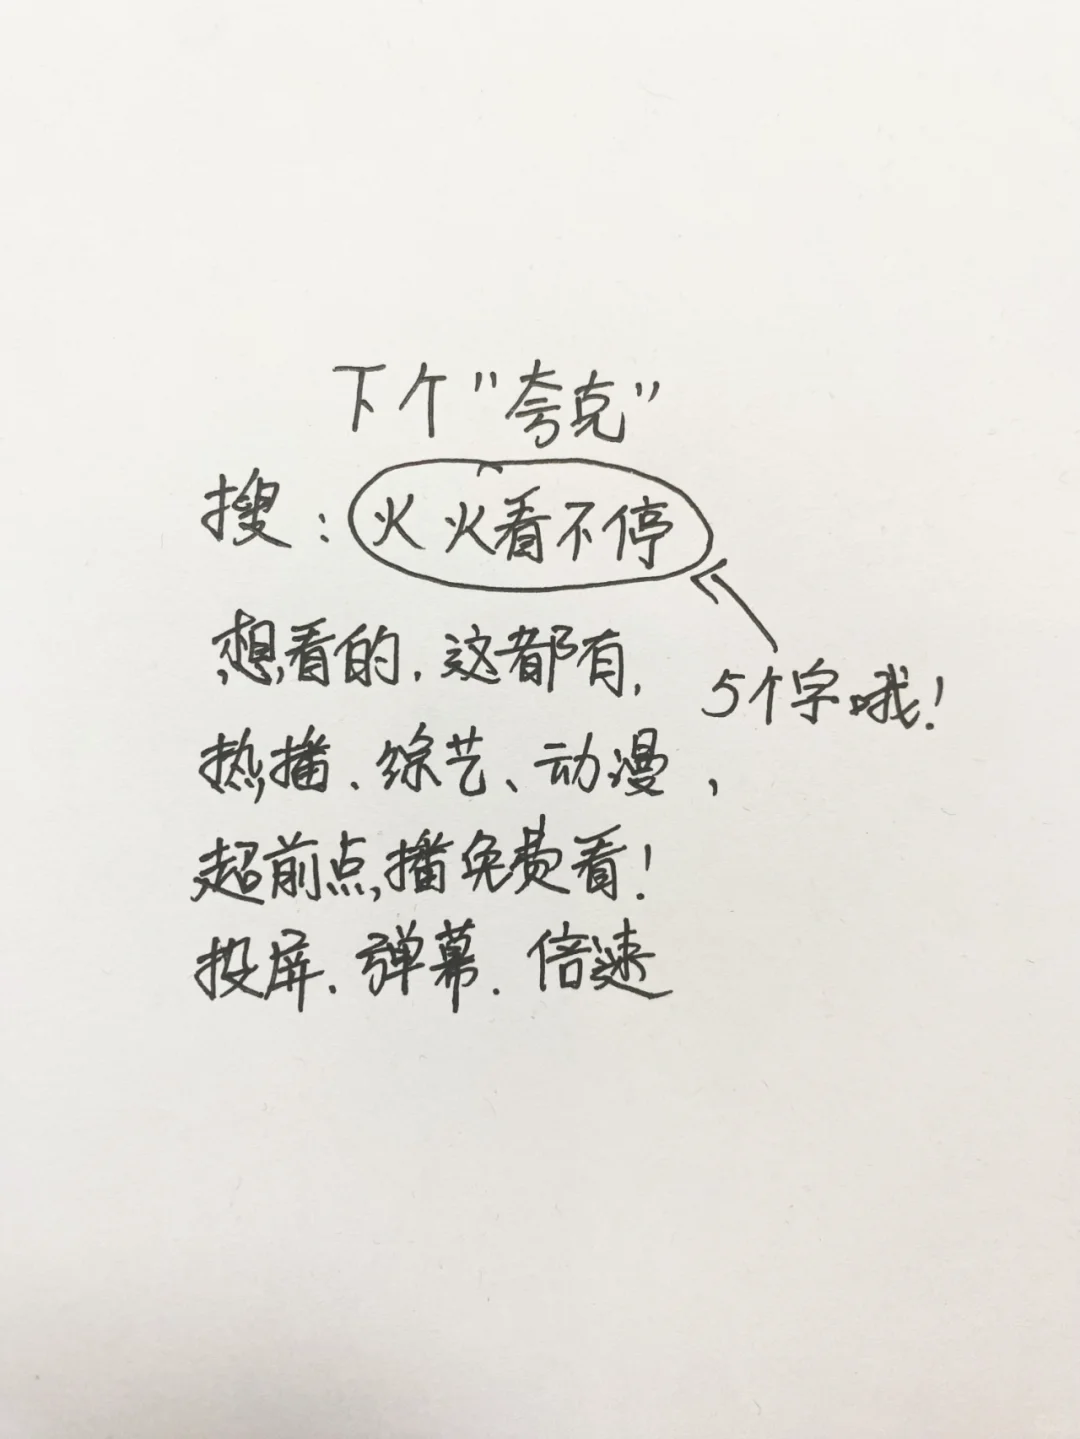 下个"夸克"
搜：火火看不停
想看的.这都有,
5个字哦！
热播、综艺、动漫,
超前点播免费看！
投屏.弹幕.倍速